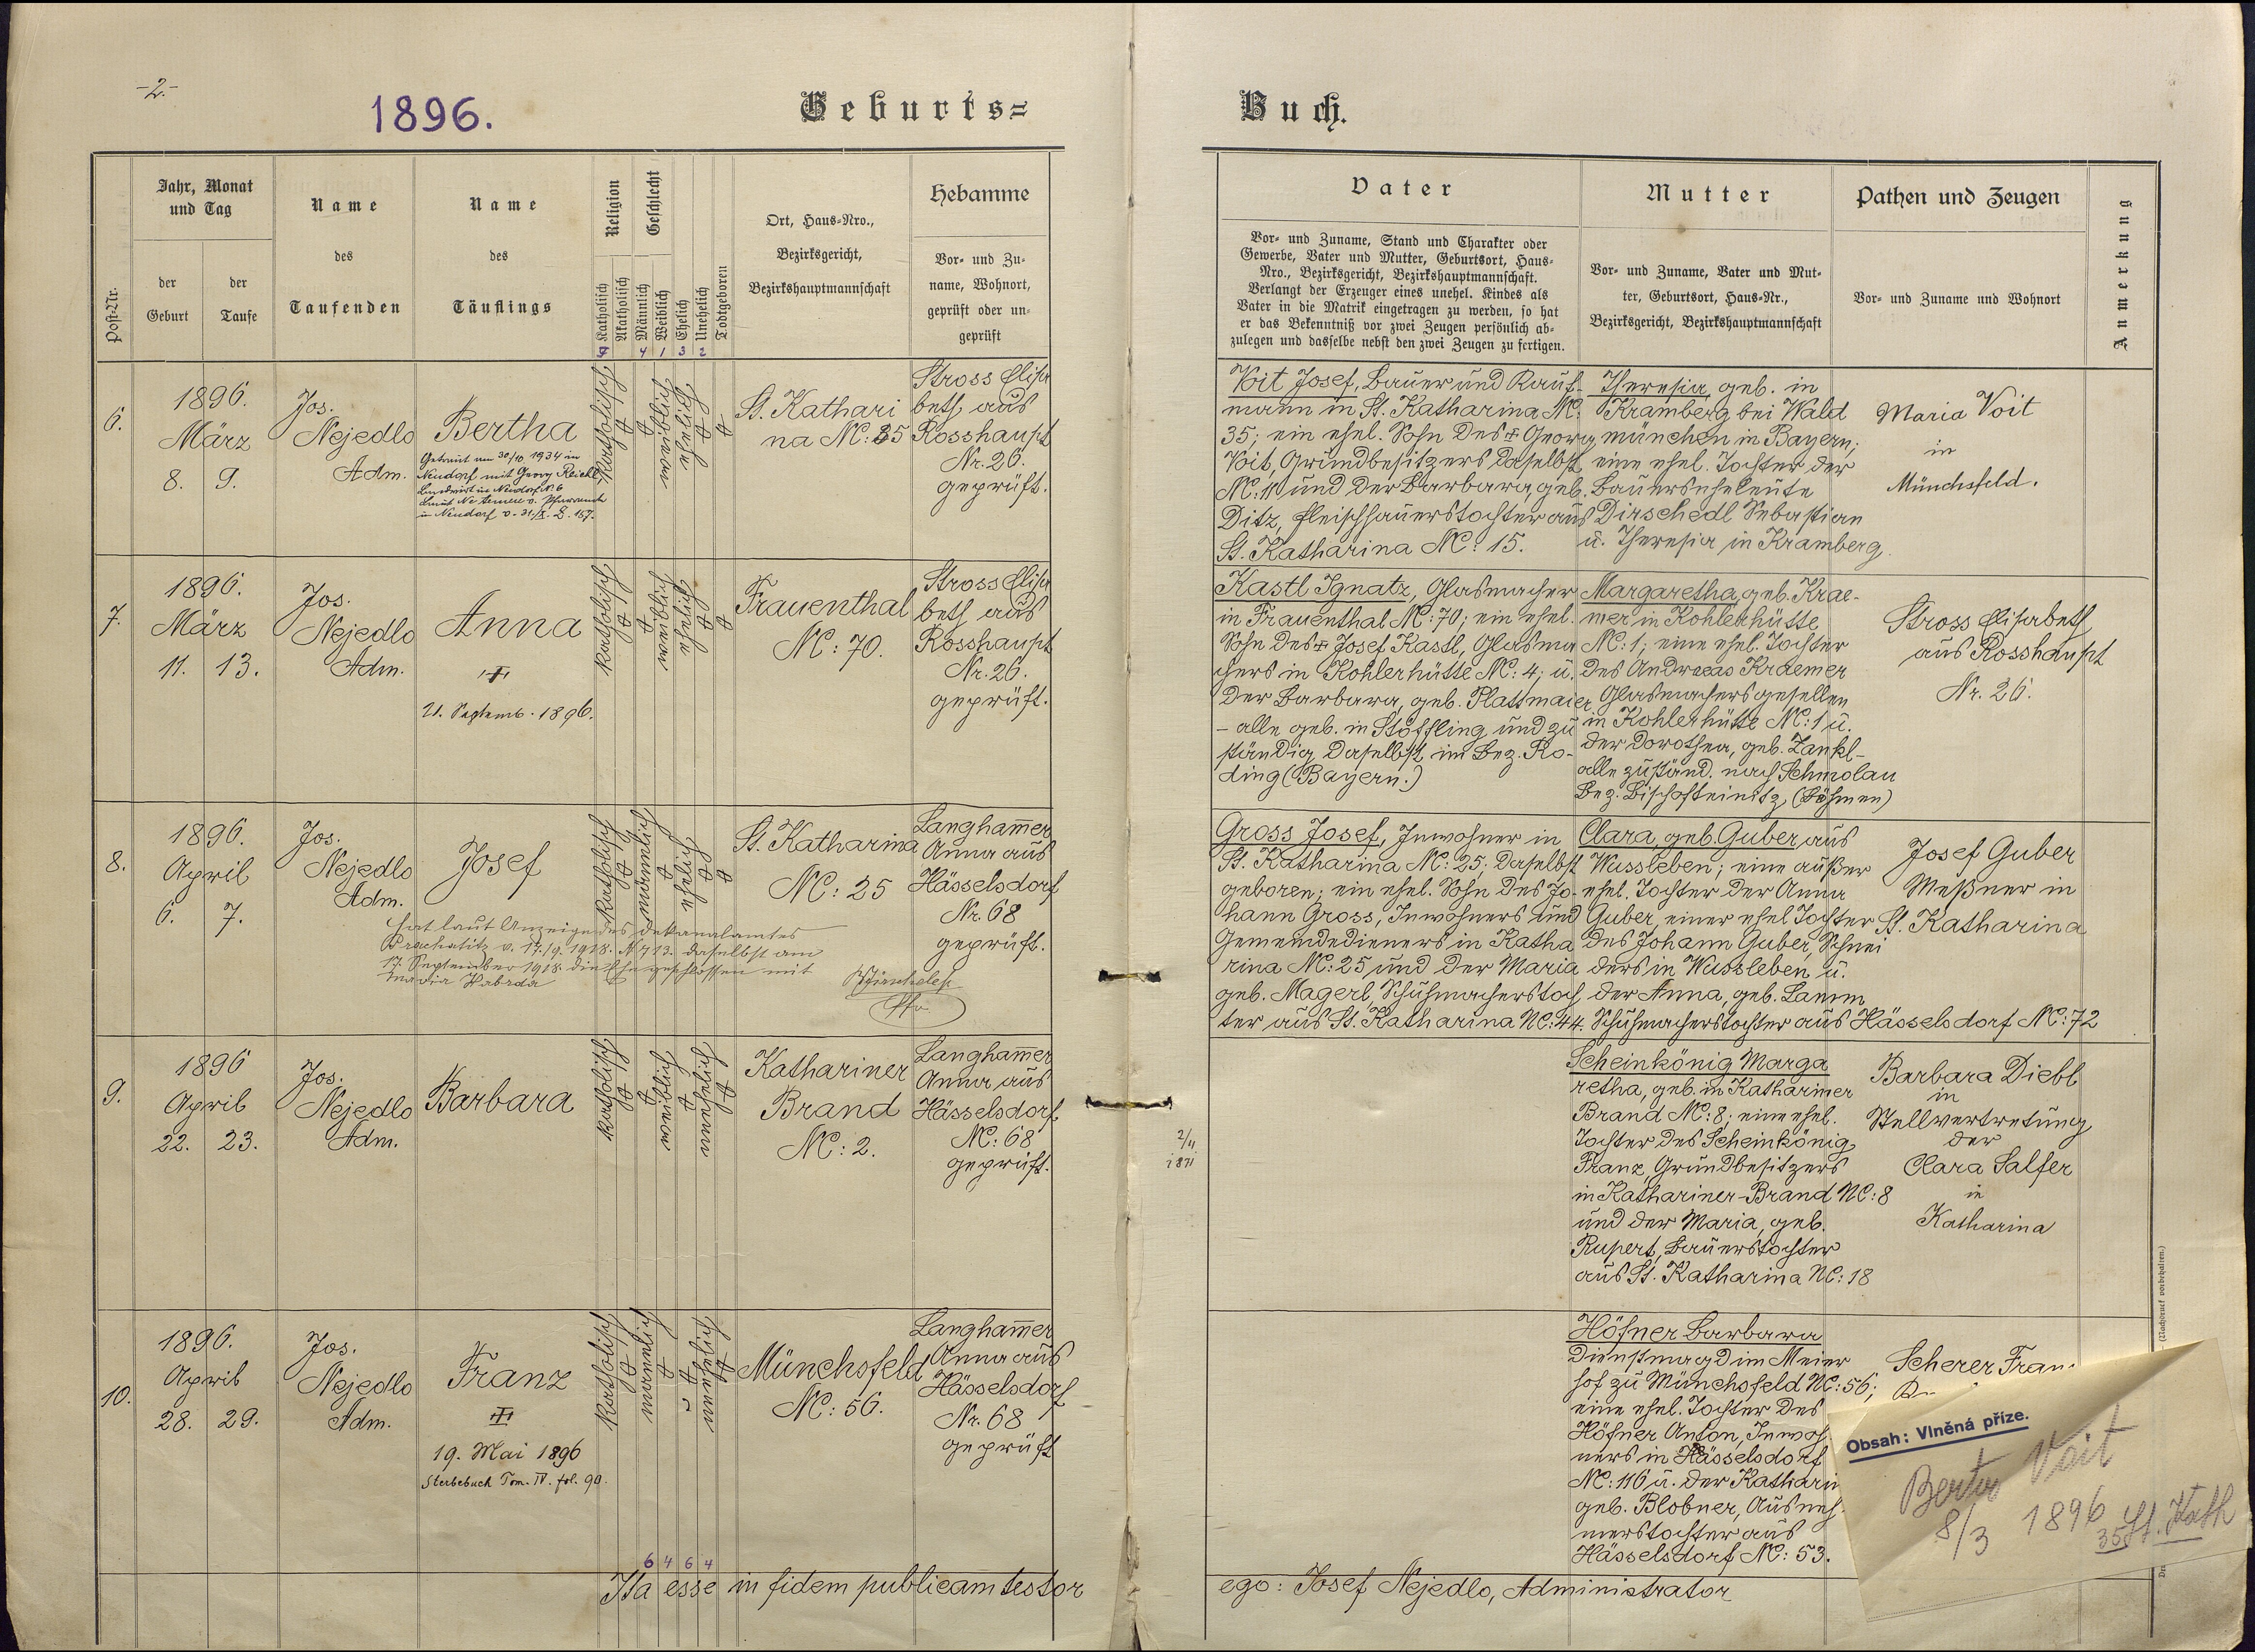 -2.-
1896.
Geburts=
Buch.
Post-Nr.
Jahr, Monat
und Tag
der
Geburt
der
Taufe
Name
des
Taufenden
Name
des
Täuflings
Religion
Katholisch
Akatholisch
Geschlecht
Männlich
Weiblich
Ehelich
Unehelich
Todtgeboren
4 1 3 2
Ort, Haus-Nro.,
Bezirksgericht,
Bezirkshauptmannschaft
Hebamme
Vor- und Zu-
name, Wohnort,
geprüft oder un-
geprüft
Vater
Vor- und Zuname, Stand und Charakter oder
Gewerbe, Vater und Mutter, Geburtsort, Haus-
Nro., Bezirksgericht, Bezirkshauptmannschaft.
Verlangt der Erzeuger eines unehel. Kindes als
Vater in die Matrik eingetragen zu werden, so hat
er das Bekenntniß vor zwei Zeugen persönlich ab-
zulegen und dasselbe nebst den zwei Zeugen zu fertigen.
Mutter
Vor- und Zuname, Vater und Mut-
ter, Geburtsort, Haus-Nr.,
Bezirksgericht, Bezirkshauptmannschaft
Pathen und Zeugen
Vor- und Zuname und Wohnort
Anmerkung
6.
1896.
März
8. 9.
Jos.
Nejedlo
Adm.
Bertha
Getraut am 30/10 1934 in
Neudorf mit Georg Reichl
Landwirt in Neudorf N. 6
in Neudorf v. 31./X. Z. 157.
katholisch
weiblich
ehelich
St. Kathari
na NC: 35
Stross Elisa
beth aus
Rosshaupt
Nr. 26.
geprüft.
Voit Josef, Bauer und Kauf-
mann in St. Katharina NC:
35; ein ehel. Sohn des Georg
Voit, Grundbesitzers daselbst
NC: 11 und der Barbara, geb.
Ditz, Fleischhauerstochter aus
St. Katharina NC: 15.
Theresia, geb. in
Kramberg bei Wald
münchen in Bayern;
eine ehel. Tochter der
Bauerseheleute
Dirschedl Sebastian
u. Theresia in Kramberg.
Maria Voit
in
Münchsfeld.
7.
1896.
März
11. 13.
Jos.
Nejedlo
Adm.
Anna
21. Septemb. 1896.
katholisch
weiblich
ehelich
Frauenthal
NC: 70.
Stross Elisa
beth aus
Rosshaupt
Nr. 26.
geprüft.
Kastl Ignatz, Glasmacher
in Frauenthal NC: 70; ein ehel.
Sohn des Josef Kastl, Glasma
chers in Kohlerhütte NC: 4; u.
der Barbara, geb. Plattmaier
- alle geb. in Stöffling und zu
ständig daselbst im Bez. Ro-
ding (Bayern.)
Margaretha, geb. Krae-
mer in Kohlerhütte
NC: 1; eine ehel. Tochter
des Andreas Kraemer
Glasmachersgesellen
in Kohlerhütte NC: 1 u.
der Dorothea, geb. Zankl-
alle zuständ. nach Schmolau
Bez. Bischofteinitz, (Böhmen)
Stross Elisabeth
aus Rosshaupt
Nr. 26.
8.
1896.
April
6. 7.
Jos.
Nejedlo
Adm.
Josef
hat laut Anzeige des Dekanalamtes
Prachatitz v. 17./9. 1918. N. 713. daselbst am
17. September 1918. die Ehe geschlossen mit
Maria Habrda
katholisch
männlich
ehelich
St. Katharina
NC: 25
Langham̄er
Anna aus
Hässelsdorf
Nr. 68
geprüft.
Gross Josef, Inwohner in
St. Katharina NC: 25; daselbst
geboren; ein ehel. Sohn des Jo-
hann Gross, Inwohners und
Gemeindedieners in Katha
rina NC: 25 und der Maria
geb. Magerl, Schuhmacherstoch
ter aus St. Katharina NC: 44.
Clara, geb. Guber aus
Wussleben; eine außer
ehel. Tochter der Anna
Guber, einer ehel. Tochter
des Johann Guber, Schnei
ders in Wussleben u.
der Anna, geb. Lamm
Schuhmacherstochter aus Hässelsdorf NC: 72
Josef Guber
Meßner in
St. Katharina
9.
1896
April
22. 23.
Jos.
Nejedlo
Adm.
Barbara
katholisch
weiblich
unehelich
Kathariner
Brand
NC: 2.
Langham̄er
Anna aus
Hässelsdorf
NC: 68
geprüft.
2/11
1871
Scheinkönig Marga
retha, geb. in Kathariner
Brand NC: 8; eine ehel.
Tochter des Scheinkönig
Franz, Grundbesitzers
in Kathariner-Brand NC: 8
und der Maria, geb.
Rupert, Bauerstochter
aus St. Katharina NC: 18
Barbara Diebl
in
Stellvertretung
der
Clara Salfer
in
Katharina
10.
1896.
April
28. 29.
Jos.
Nejedlo
Adm.
Franz
19. Mai 1896
Sterbebuch Tom. IV. fol. 90.
katholisch
männlich
unehelich
Münchsfeld
NC: 56.
Langham̄er
Anna aus
Hässelsdorf
Nr. 68
geprüft
Höfner Barbara
Dienstmagd im Meier
hof zu Münchsfeld NC: 56;
eine ehel. Tochter des
Höfner Anton, Inwoh
ners in Hässelsdorf
NC: 116 u. der Katharin
geb. Blobner, Ausneh
merstochter aus
Hässelsdorf NC: 53.
Scherer Fran
Obsah: Vlněná příze.
Berta Voit
8/3 1896
35 St. Kath
6 4 6 4
Ita esse in fidem publicam testor
ego: Josef Nejedlo, Administrator
(Nachdruck vorbehalten.)